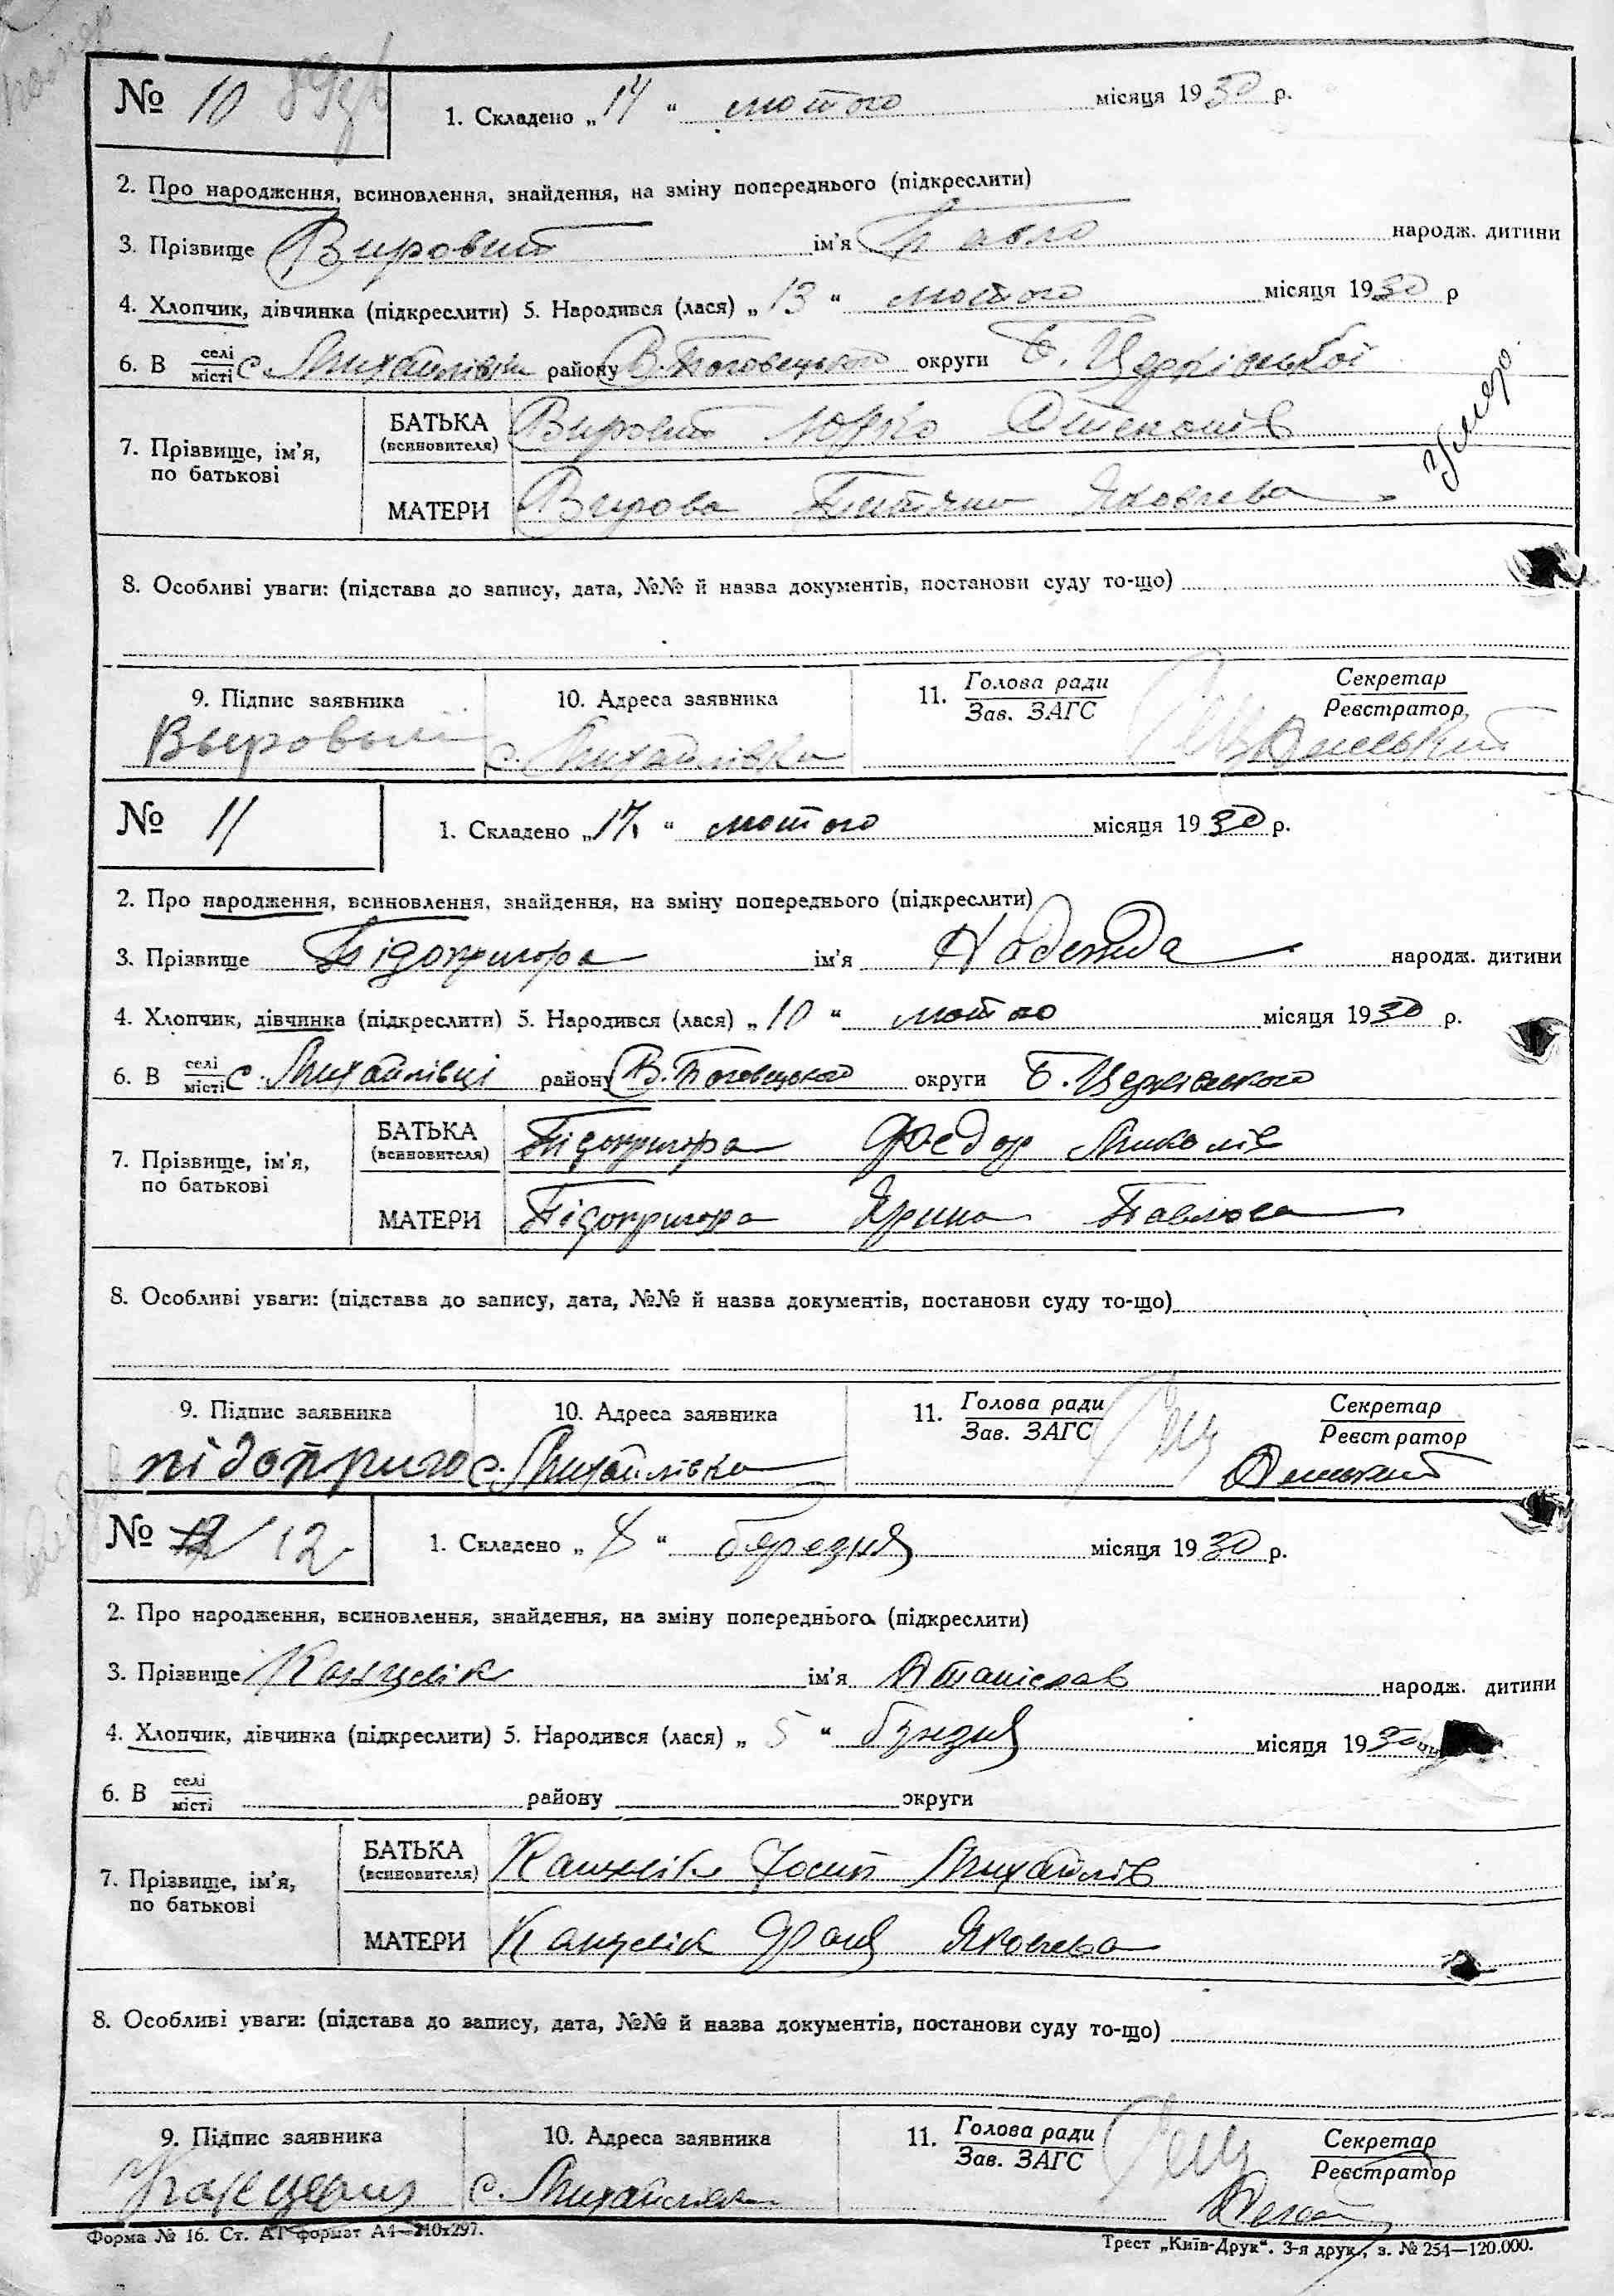 № 10
1. Складено „14“ лютого місяця 1930 р.
2. Про народження, всиновлення, знайдення, на зміну попереднього (підкреслити)
3. Прізвище Вировий ім'я Павло народж. дитини
4. Хлопчик, дівчинка (підкреслити) 5. Народився (лася) „13“ лютого місяця 1930 р
6. В селі місті с. Михайлівці району В. округи Б. Церківської
7. Прізвище, ім'я, по батькові
БАТЬКА (всиновителя) Вировий Юрко Степанів
МАТЕРИ Вирова Титяна Яковлева
Умер
8. Особливі уваги: (підстава до запису, дата, №№ й назва документів, постанови суду то-що)
9. Підпис заявника
Выровый
10. Адреса заявника
с. Михайлівка
11. Голова ради
Зав. ЗАГС
Секретар
Реєстратор
№ 11
1. Складено „17“ лютого місяця 1930 р.
2. Про народження, всиновлення, знайдення, на зміну попереднього (підкреслити)
3. Прізвище Підопригора ім'я Надежда народж. дитини
4. Хлопчик, дівчинка (підкреслити) 5. Народився (лася) „10“ лютого місяця 1930 р.
6. В селі місті с. Михайлівці району В. округи Б. Церківського
7. Прізвище, ім'я, по батькові
БАТЬКА (всиновителя) Підопригора Федор Миколів
МАТЕРИ Підопригора Ярина Павлова
8. Особливі уваги: (підстава до запису, дата, №№ й назва документів, постанови суду то-що)
9. Підпис заявника
підоприго
10. Адреса заявника
с. Михайлівка
11. Голова ради
Зав. ЗАГС
Секретар
Реєстратор
№ 12
1. Складено „8“ березня місяця 1930 р.
2. Про народження, всиновлення, знайдення, на зміну попереднього (підкреслити)
3. Прізвище Канцелік ім'я Станіслав народж. дитини
4. Хлопчик, дівчинка (підкреслити) 5. Народився (лася) „5“ березня місяця 1930
6. В селі місті району округи
7. Прізвище, ім'я, по батькові
БАТЬКА (всиновителя) Канцелік Йосип Михайлів
МАТЕРИ Канцелік Франя Яковлева
8. Особливі уваги: (підстава до запису, дата, №№ й назва документів, постанови суду то-що)
9. Підпис заявника
10. Адреса заявника
с. Михайлівка
11. Голова ради
Зав. ЗАГС
Секретар
Реєстратор
Форма № 16. Ст. АТ формат А4—210x297.
Трест „Київ-Друк“. 3-я друк., з. № 254—120.000.